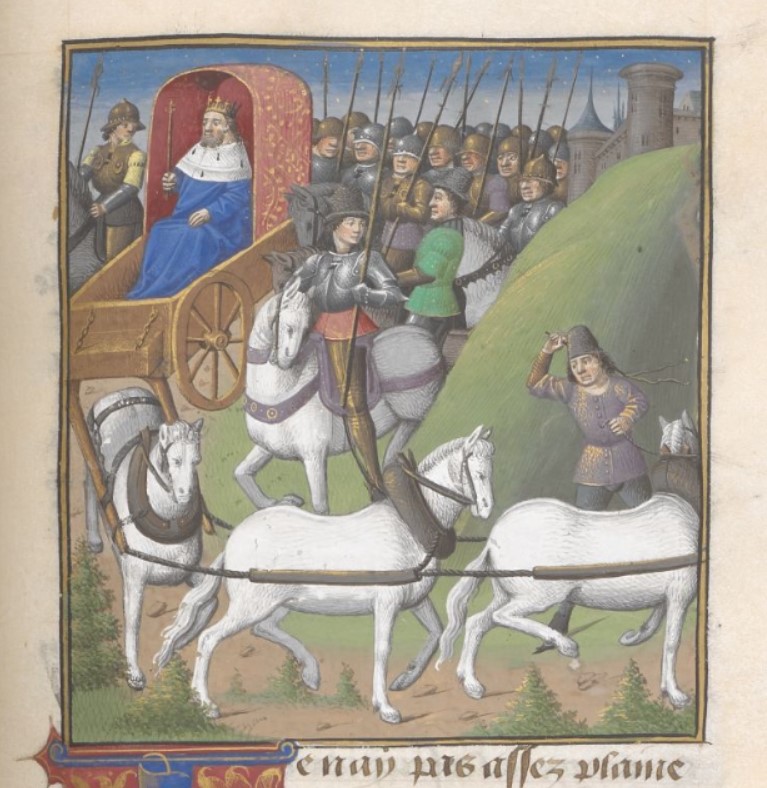 e nay pas assez plaine